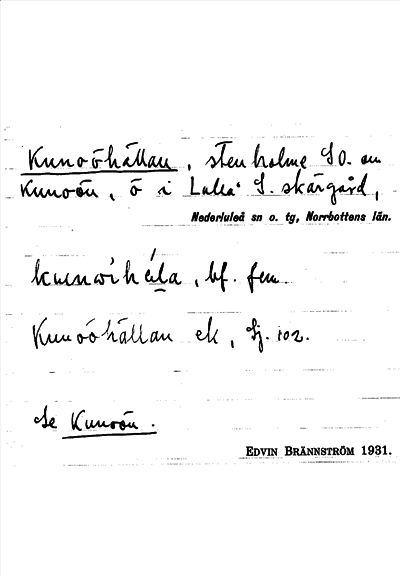 Kunoöhällan, stenholme SO. om
Kunoön, ö i Luleå S. skärgård,
Nederluleå sn o. tg, Norrbottens län.
bf. fem.
Kunoöhällan ek, Sj. 102.
Se Kunoön.
EDVIN BRÄNNSTRÖM 1931.